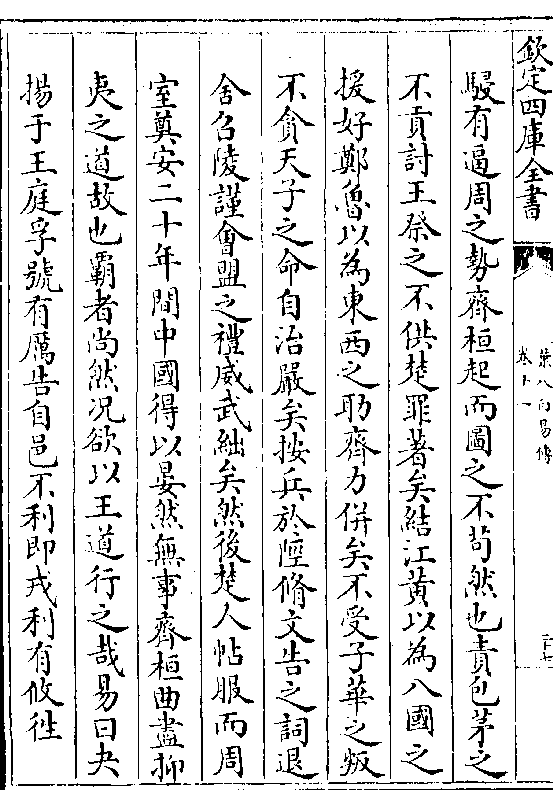 欽定四庫全書
葉八白易傳
卷十一
駸有逼周之勢齊桓起而圖之不苟然也責包茅之
不貢討王祭之不供楚罪著矣結江黄以為八國之
援好鄭魯以為東西之助齊力併矣不受子華之叛
不貪天子之命自治嚴矣按兵於陘脩文告之詞退
舍召陵謹會盟之禮威武絀矣然後楚人帖服而周
室奠安二十年間中國得以晏然無事齊桓曲盡抑
夷之道故也霸者尚然况欲以王道行之哉易曰夬
揚于王庭孚號有厲告自邑不利即戎利有攸徃